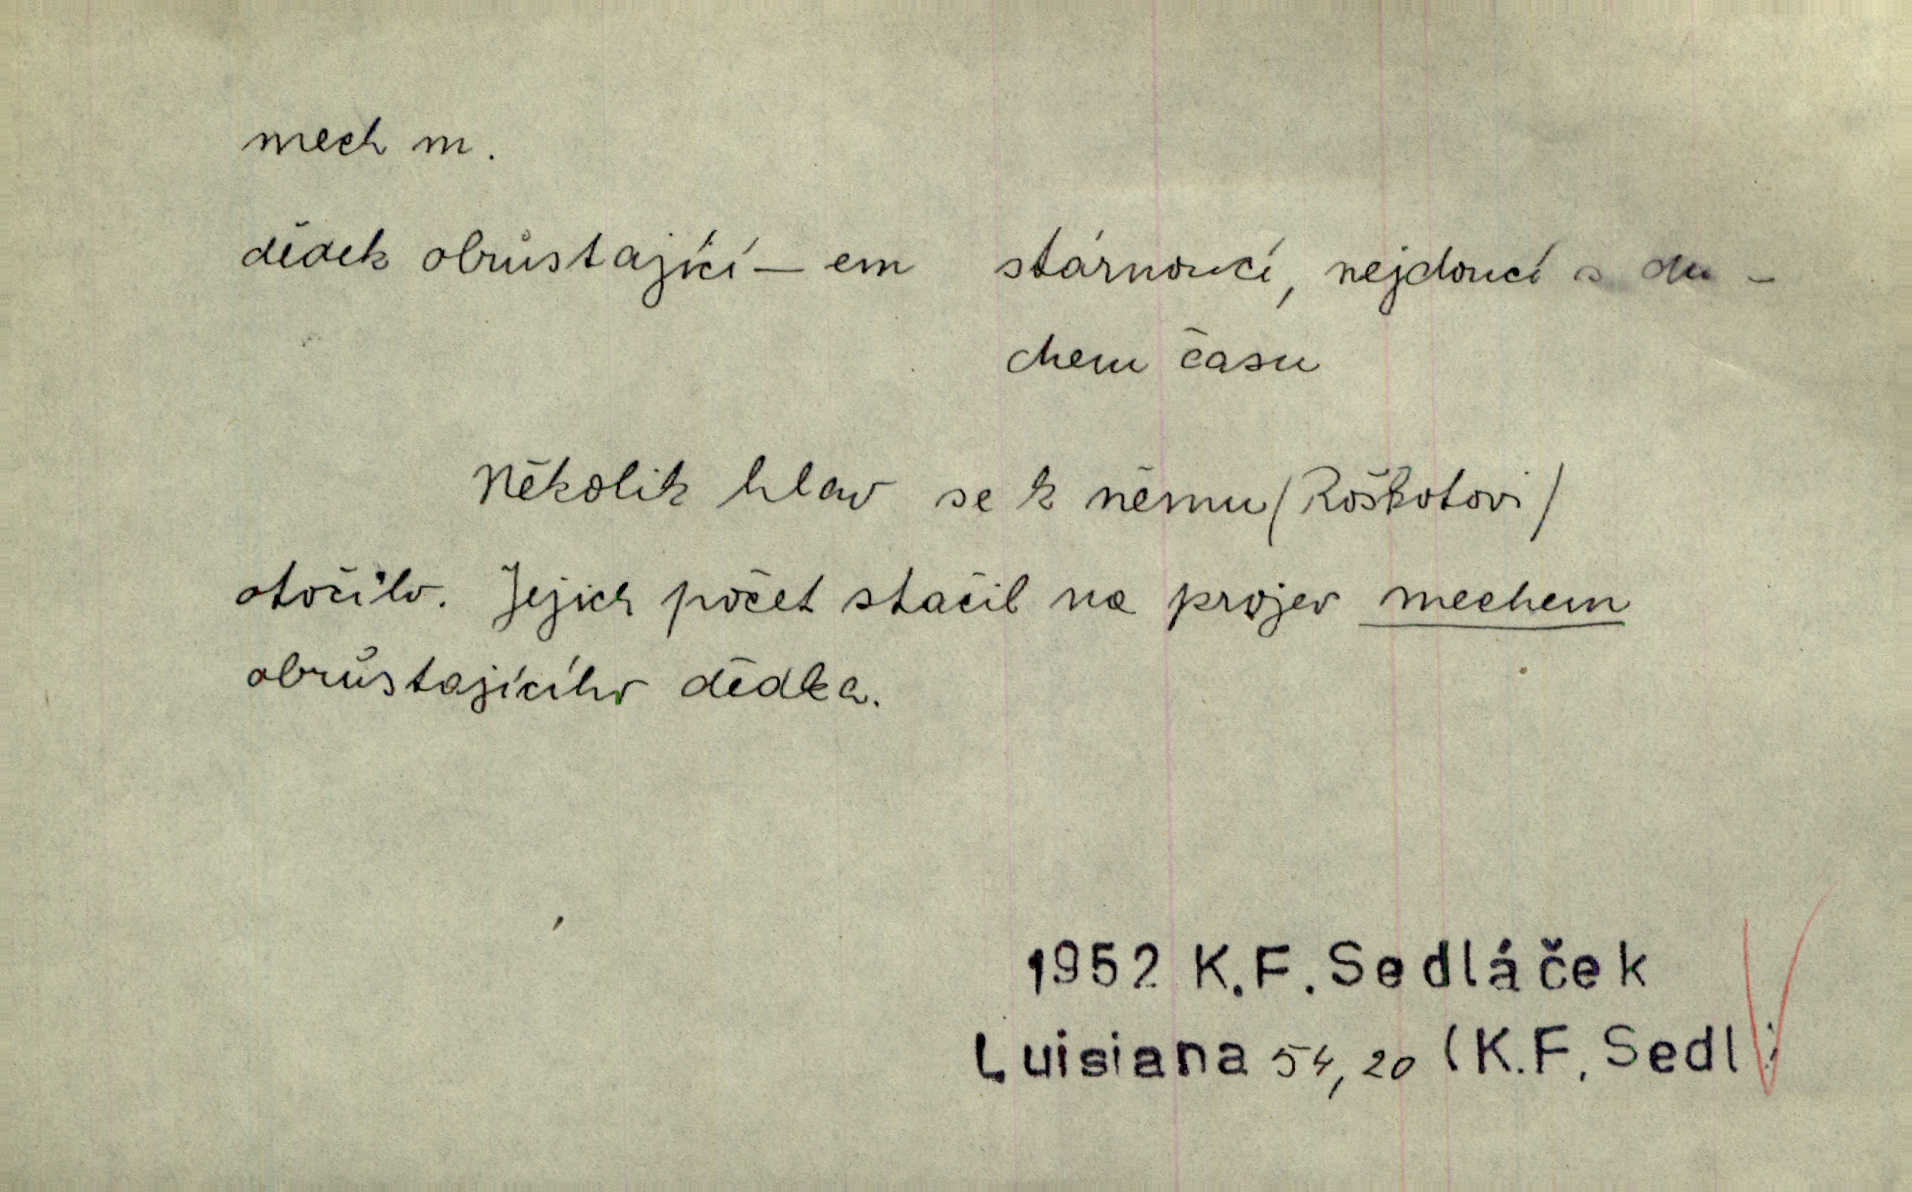 mech m.
dědek obrůstající – em stárnoucí, nejdoucí s du -
chem času
Několik hlav se k němu (Roškotovi)
otočilo. Jejich počet stačil na projev mechem
obrůstajícího dědka.
1952 K.F.Sedláček
Luisiana 54,20 (K.F.Sedl)